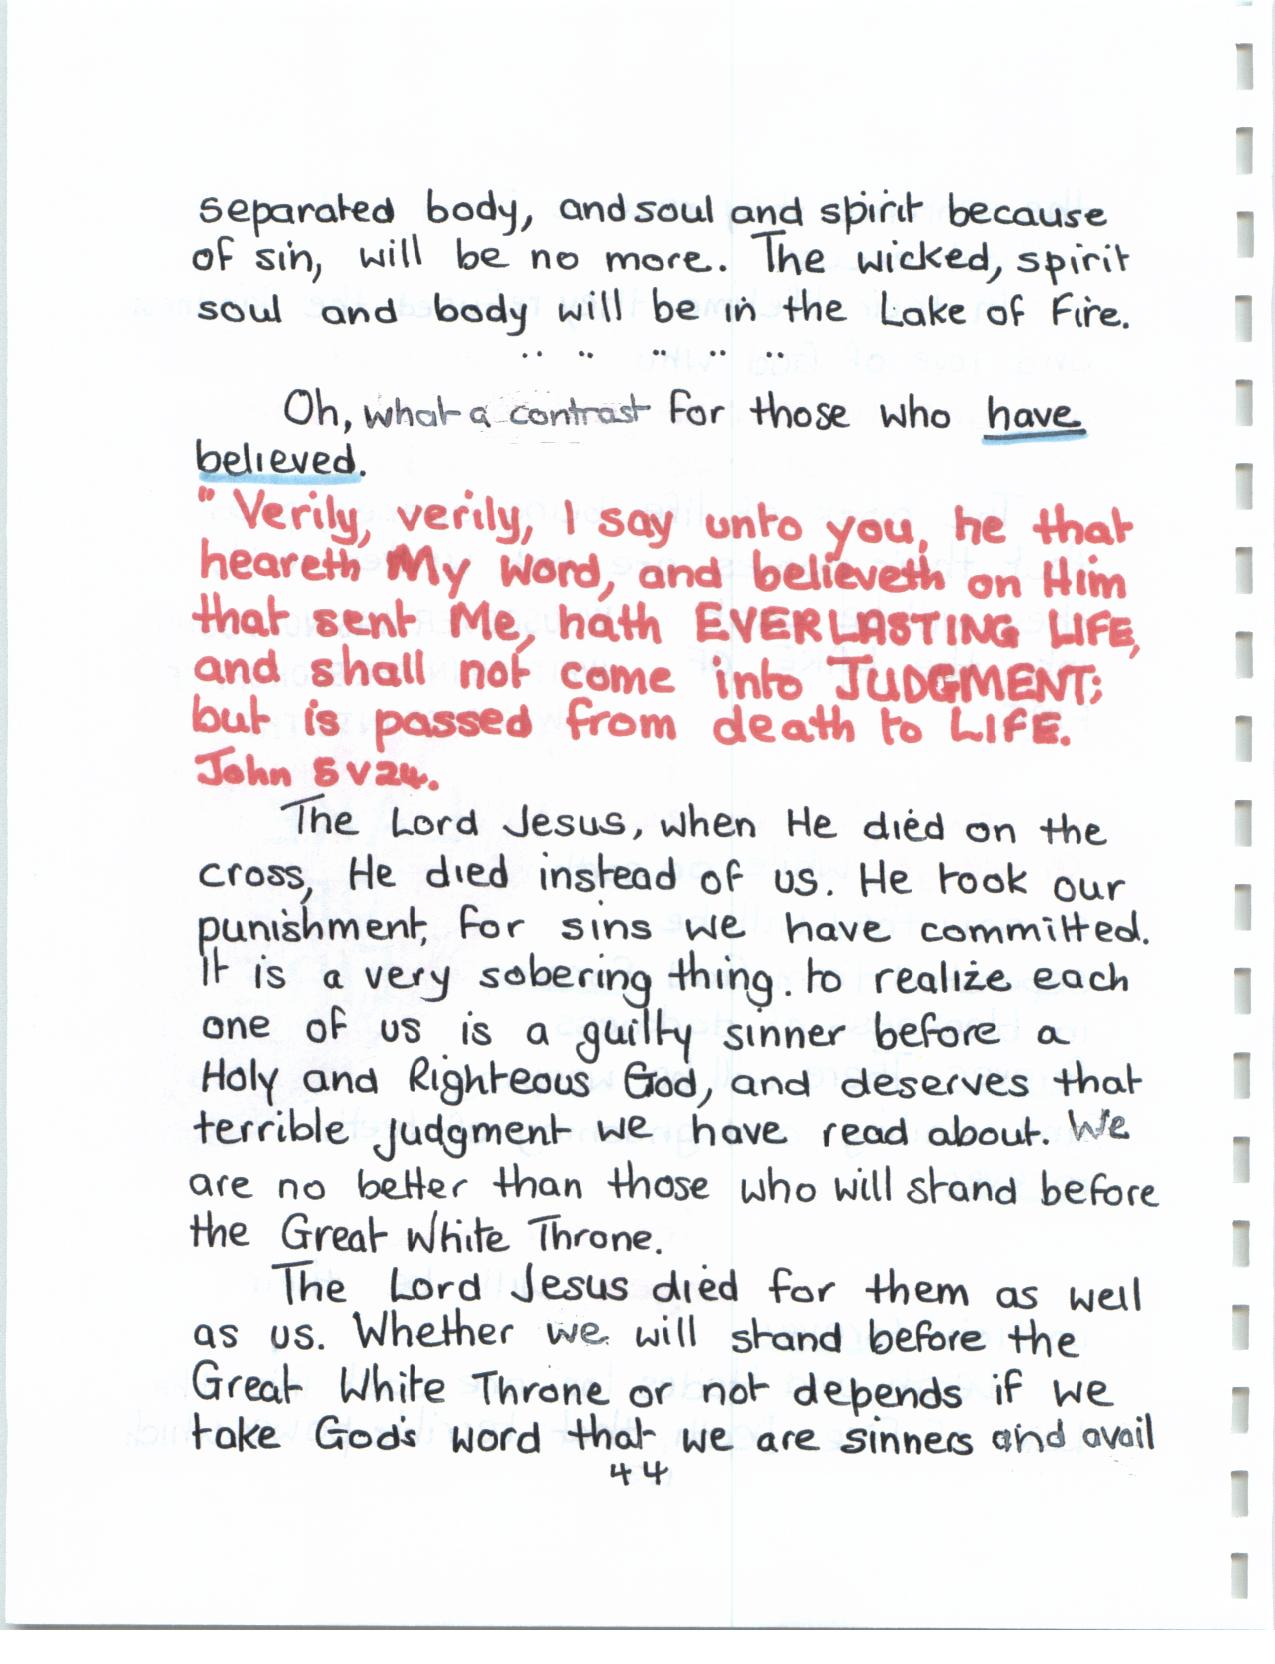 separated body, and soul and spirit because
of sin, will be no more. The wicked, spirit
soul and body will be in the Lake of Fire.
.. .. .. .. ..
Oh, what a contrast for those who have
believed.
" Verily, verily, I say unto you, he that
heareth My Word, and believeth on Him
that sent Me, hath EVERLASTING LIFE,
and shall not come into JUDGMENT;
but is passed from death to LIFE.
John 5 v 24.
The Lord Jesus, when He died on the
cross, He died instead of us. He took our
punishment, for sins we have committed.
It is a very sobering thing. to realize each
one of us is a guilty sinner before a
Holy and Righteous God, and deserves that
terrible judgment we have read about. We
are no better than those who will stand before
the Great White Throne.
The Lord Jesus died for them as well
as us. Whether we will stand before the
Great White Throne or not depends if we
take God's word that we are sinners and avail
44